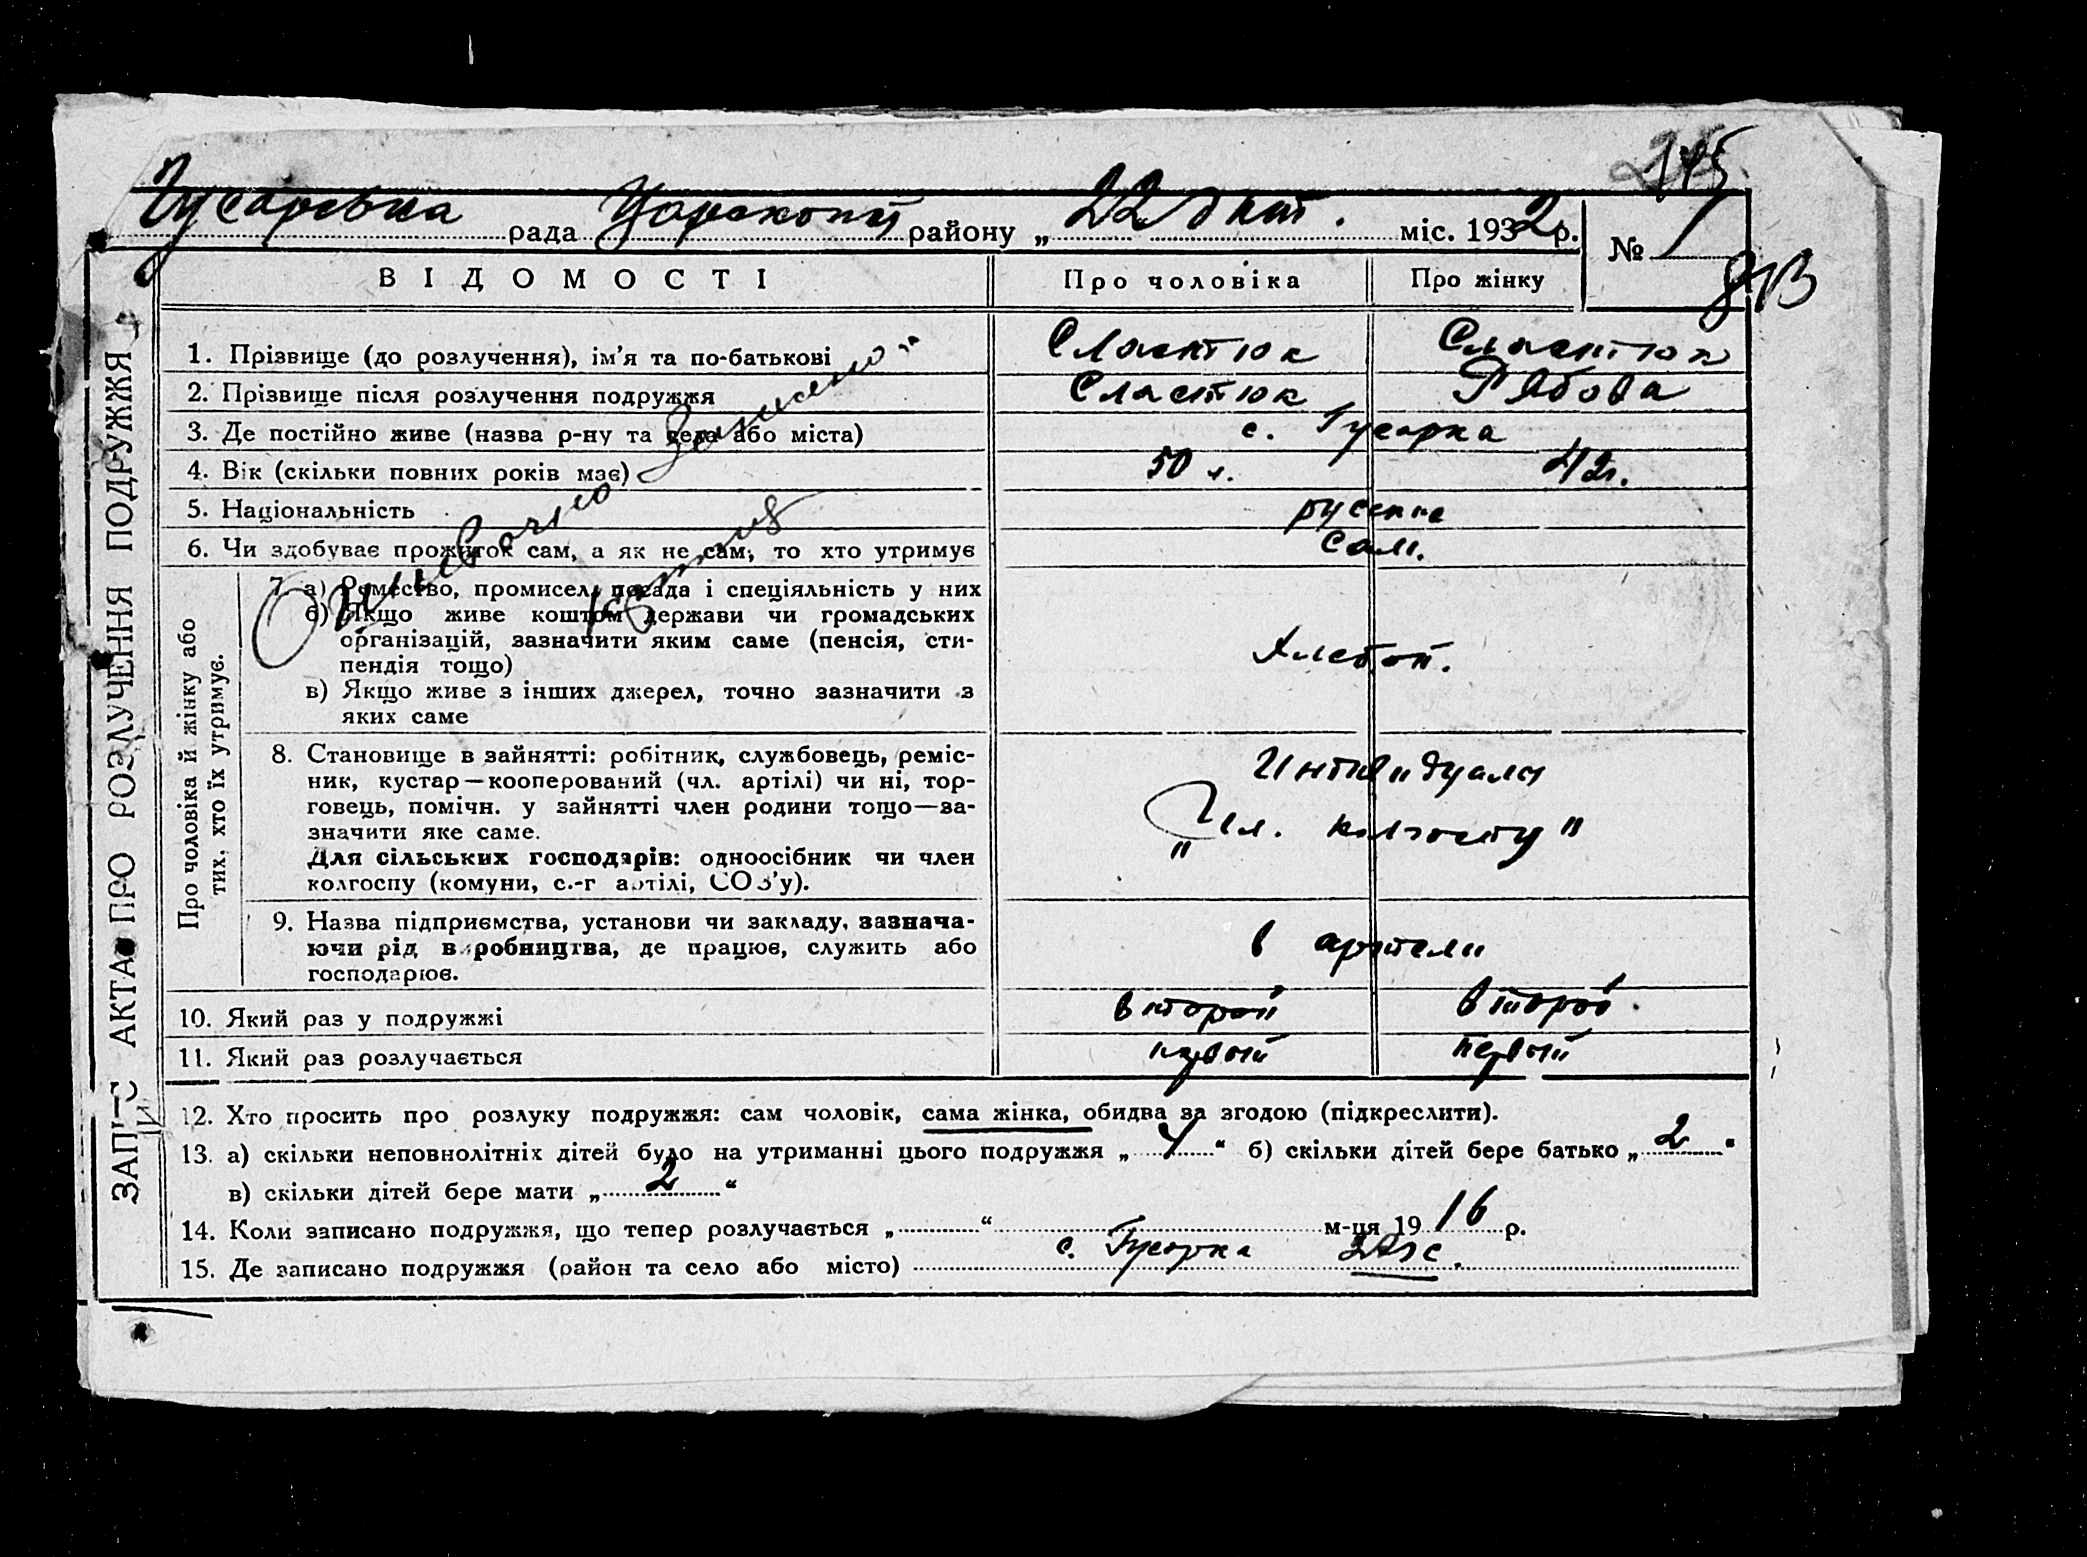 245.
Гусаровка рада района „ 22 " окт. міс. 1932 р. № 1
ЗАПИС АКТА ПРО РОЗЛУЧЕННЯ ПОДРУЖЖЯ
ВІДОМОСТІ Про чоловіка Про жінку
1. Прізвище (до розлучення), ім’я та по-батькові Сластюк Сластюк
2. Прізвище після розлучення подружжя Сластюк Рябова
3. Де постійно живе (назва р-ну та села або міста) с. Гусарка
4. Вік (скільки повних років має) 50 л. 42 г.
5. Національність русские
6. Чи здобуває прожиток сам, а як не сам, то хто утримує Сам.
Про чоловіка й жінку або тих, хто їх утримує.
7. а) Ремество, промисел, посада і спеціяльність у них
б) Якщо живе коштом держави чи громадських
організацій, зазначити яким саме (пенсія, сти-
пендія тощо) Хлебоп.
в) Якщо живе з інших джерел, точно зазначити з
яких саме
8. Становище в зайнятті: робітник, службовець, реміс-
ник, кустар—кооперований (чл. артілі) чи ні, тор-
говець, помічн. у зайнятті член родини тощо—за-
значити яке саме.
Для сільських господарів: одноосібник чи член
колгоспу (комуни, с.-г артілі, СОЗ’у).
„Чл. колгоспу"
9. Назва підприємства, установи чи закладу, зазнача-
ючи рід виробництва, де працює, служить або
господарює.
в артели
10. Який раз у подружжі второй второй
11. Який раз розлучається первый первый
12. Хто просить про розлуку подружжя: сам чоловік, сама жінка, обидва за згодою (підкреслити).
13. а) скільки неповнолітніх дітей було на утриманні цього подружжя „ 4 “ б) скільки дітей бере батько „ 2 “
в) скільки дітей бере мати „ 2 “
14. Коли записано подружжя, що тепер розлучається „ “ м-ця 1916 р.
15. Де записано подружжя (район та село або місто) с. Гусарка ЗАГС.